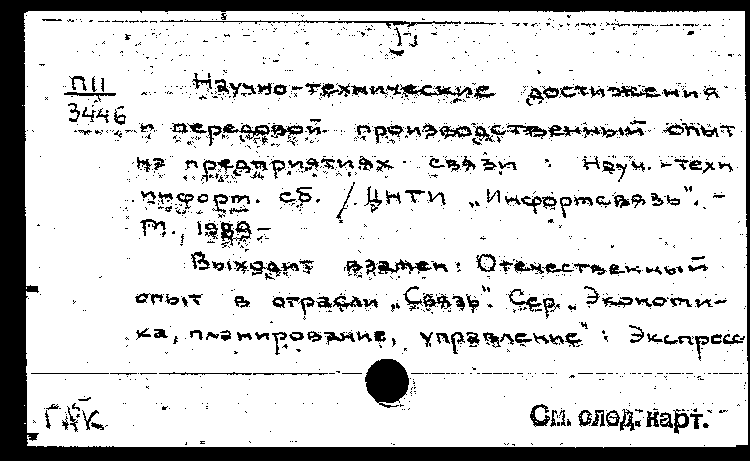 Н
П11
3446
Научно-технические достижения
и передовой производственный опыт
на предприятиях связи : Науч.-техн
информ. сб. / ЦНТИ „Информсвязь". –
М., 1989 –
Выходит взамен: Отечественный
опыт в отрасли „Связь". Сер. „Экономи-
ка, планирование, управление" : Экспресс
ГАК
См. след. карт.